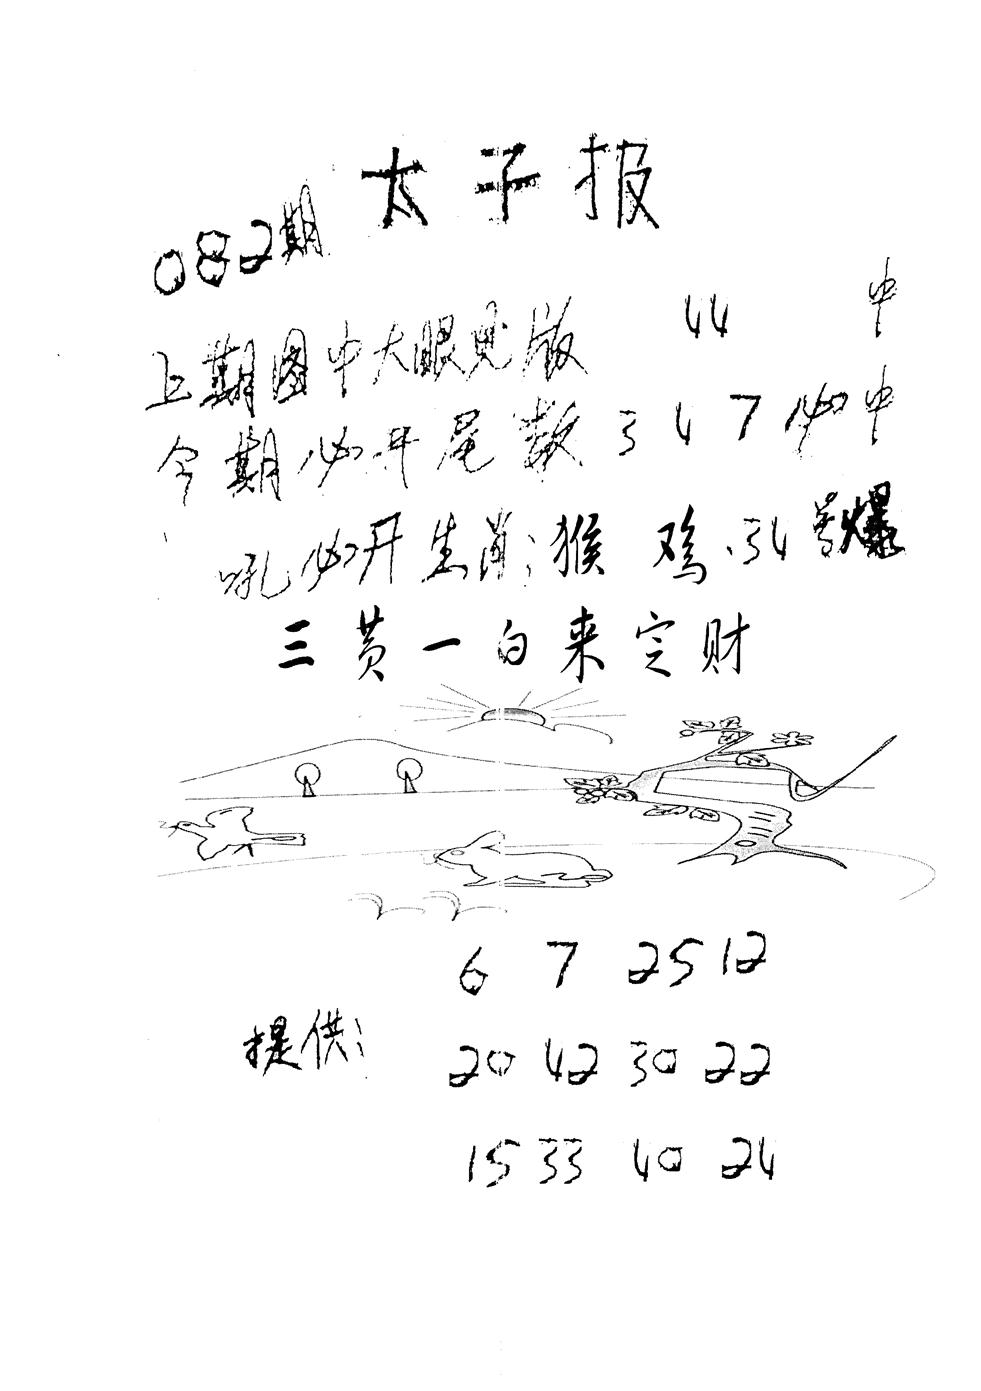 太子报
082期
上期图中大眼见版 44 中
今期必开尾数 3 4 7 必中
吼必开生肖:猴 鸡.34号爆
三黄一白来定财
6 7 25 12
提供:
20 42 30 22
15 33 40 24